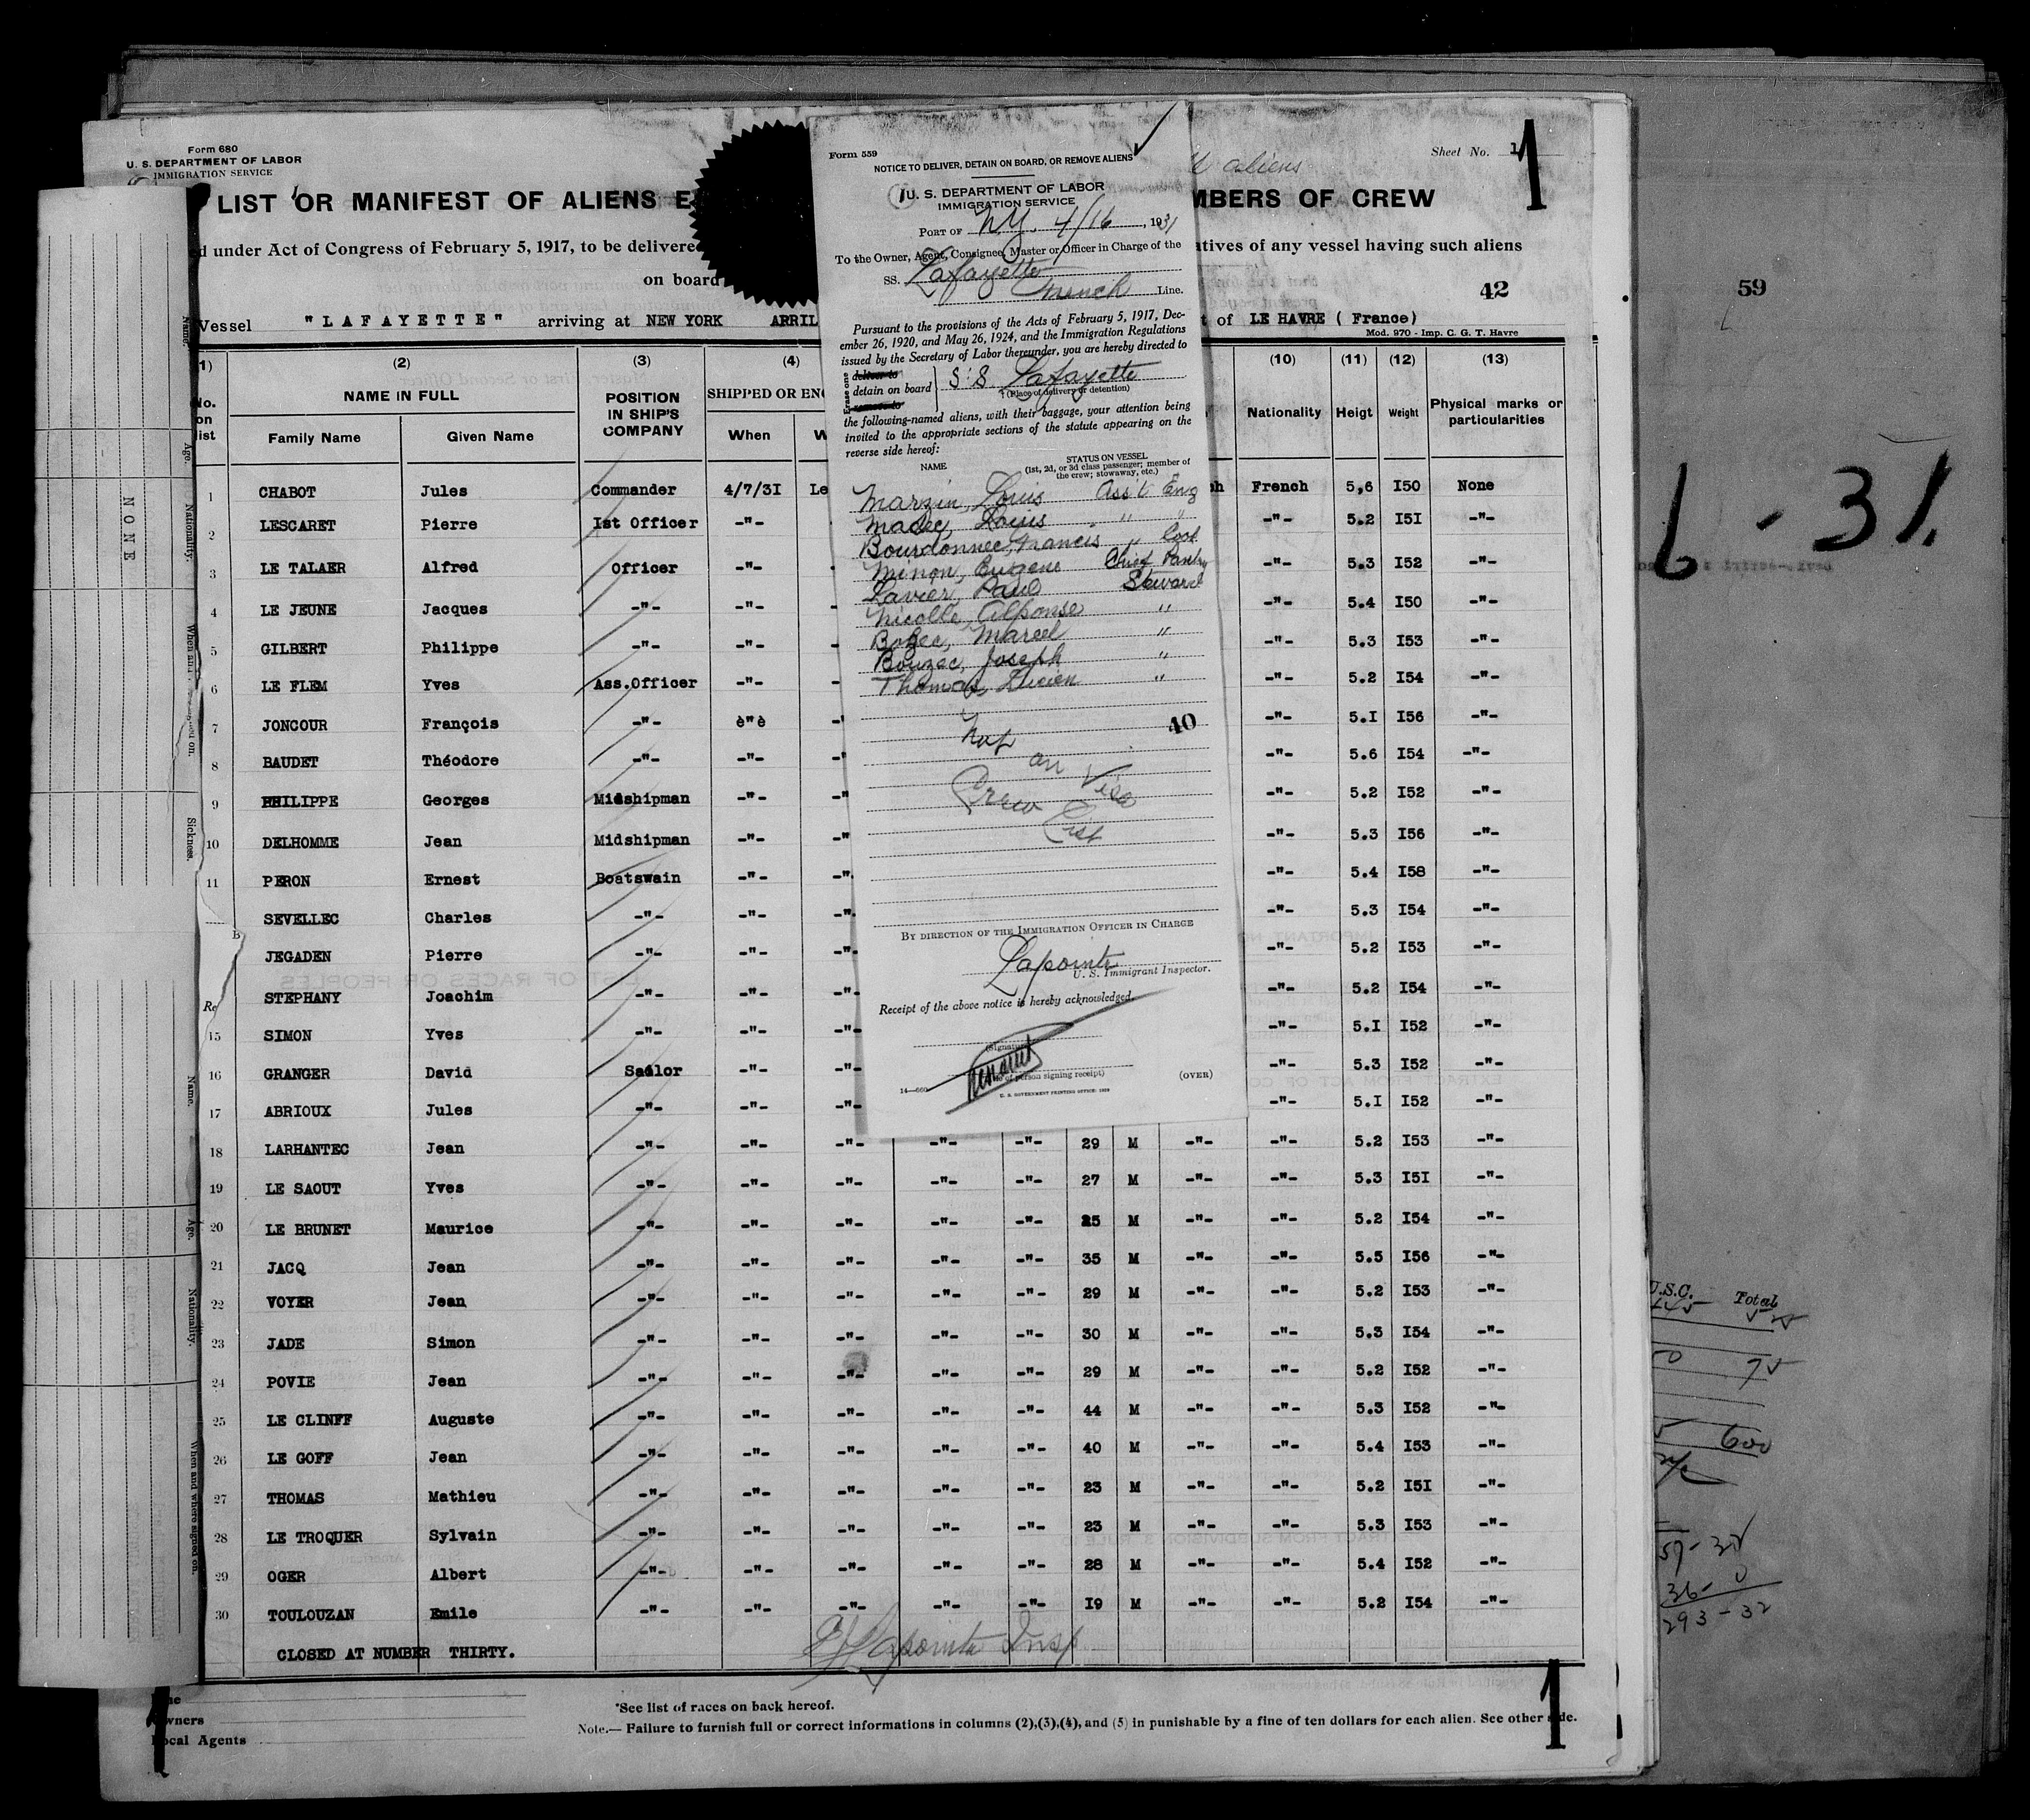 Form 680
U. S. DEPARTMENT OF LABOR
IMMIGRATION SERVICE
Sheet No. 1
1
aliens
LIST OR MANIFEST OF ALIENS E
MBERS OF CREW
d under Act of Congress of February 5, 1917, to be delivere
atives of any vessel having such aliens
on board
42
Vessel "LAFAYETTE" arriving at NEW YORK APRIL
t of LE HAVRE ( France)
Mod. 970 - Imp. C. G. T. Havre
1) (2) (3) (4) (10) (11) (12) (13)
No. on list
NAME IN FULL
Family Name Given Name
POSITION IN SHIP'S COMPANY
SHIPPED OR ENG
When W
Nationality Heigt Weight Physical marks or particularities
1 CHABOT Jules Commander 4/7/3I Le French 5,6 I50 None
2 LESCARET Pierre Ist Officer -"- -"- 5.2 I5I -"-
3 LE TALAER Alfred Officer -"- -"- 5.3 I52 -"-
4 LE JEUNE Jacques -"- -"- -"- 5.4 I50 -"-
5 GILBERT Philippe -"- -"- -"- 5.3 I53 -"-
6 LE FLEM Yves Ass.Officer -"- -"- 5.2 I54 -"-
7 JONCOUR François -"- è"è -"- 5.I I56 -"-
8 BAUDET Théodore -"- -"- -"- 5.6 I54 -"-
9 PHILIPPE Georges Midshipman -"- -"- 5.2 I52 -"-
10 DELHOMME Jean Midshipman -"- -"- 5.3 I56 -"-
11 PERON Ernest Boatswain -"- -"- 5.4 I58 -"-
SEVELLEC Charles -"- -"- -"- 5.3 I54 -"-
JEGADEN Pierre -"- -"- -"- 5.2 I53 -"-
STEPHANY Joachim -"- -"- -"- 5.2 I54 -"-
15 SIMON Yves -"- -"- -"- 5.I I52 -"-
16 GRANGER David Sailor -"- -"- 5.3 I52 -"-
17 ABRIOUX Jules -"- -"- -"- 5.I I52 -"-
18 LARHANTEC Jean -"- -"- -"- -"- -"- 29 M -"- -"- 5.2 I53 -"-
19 LE SAOUT Yves -"- -"- -"- -"- -"- 27 M -"- -"- 5.3 I5I -"-
20 LE BRUNET Maurice -"- -"- -"- -"- -"- 25 M -"- -"- 5.2 I54 -"-
21 JACQ Jean -"- -"- -"- -"- -"- 35 M -"- -"- 5.5 I56 -"-
22 VOYER Jean -"- -"- -"- -"- -"- 29 M -"- -"- 5.2 I53 -"-
23 JADE Simon -"- -"- -"- -"- -"- 30 M -"- -"- 5.3 I54 -"-
24 POVIE Jean -"- -"- -"- -"- -"- 29 M -"- -"- 5.2 I52 -"-
25 LE CLINFF Auguste -"- -"- -"- -"- -"- 44 M -"- -"- 5.3 I52 -"-
26 LE GOFF Jean -"- -"- -"- -"- -"- 40 M -"- -"- 5.4 I53 -"-
27 THOMAS Mathieu -"- -"- -"- -"- -"- 23 M -"- -"- 5.2 I5I -"-
28 LE TROQUER Sylvain -"- -"- -"- -"- -"- 23 M -"- -"- 5.3 I53 -"-
29 OGER Albert -"- -"- -"- -"- -"- 28 M -"- -"- 5.4 I52 -"-
30 TOULOUZAN Emile -"- -"- -"- -"- -"- I9 M -"- -"- 5.2 I54 -"-
CLOSED AT NUMBER THIRTY.
Lapointe Insp
*See list of races on back hereof.
Owners
Local Agents
Note.— Failure to furnish full or correct informations in columns (2),(3),(4), and (5) in punishable by a fine of ten dollars for each alien. See other side.
1
Form 559
NOTICE TO DELIVER, DETAIN ON BOARD, OR REMOVE ALIENS
U. S. DEPARTMENT OF LABOR
IMMIGRATION SERVICE
PORT OF N.Y. 4/16, 1931
To the Owner, Agent, Consignee, Master or Officer in Charge of the
SS. Lafayette
French Line.
Pursuant to the provisions of the Acts of February 5, 1917, Dec-
ember 26, 1920, and May 26, 1924, and the Immigration Regulations
issued by the Secretary of Labor thereunder, you are hereby directed to
Erase one
deliver to
detain on board
remove to
S.S. Lafayette
(Place of delivery or detention)
the following-named aliens, with their baggage, your attention being
invited to the appropriate sections of the statute appearing on the
reverse side hereof:
NAME
STATUS ON VESSEL
(1st, 2d, or 3d class passenger; member of
the crew; stowaway, etc.)
Marzin, Louis Ass't Eng
Madec, Louis " "
Bourdonnec, Francis " Cook
Minon, Eugene Chief Pantry
Lavier, Paul Steward
Nicolle, Alponse "
Bozec, Marcel "
Bouzec, Joseph "
Thomas, Lucien "
40
Not
on Visa
Crew
List
BY DIRECTION OF THE IMMIGRATION OFFICER IN CHARGE
Lapointe
U. S. Immigrant Inspector.
Receipt of the above notice is hereby acknowledged.
(Signature)
of person signing receipt)
14—660
(OVER)
U. S. GOVERNMENT PRINTING OFFICE: 1929
Name.
Age.
NONE
Nationality.
Sickness.
Name.
Age.
Nationality.
When and where signed on.
59
6 - 31.
U.S.C. Total
600
293 - 32